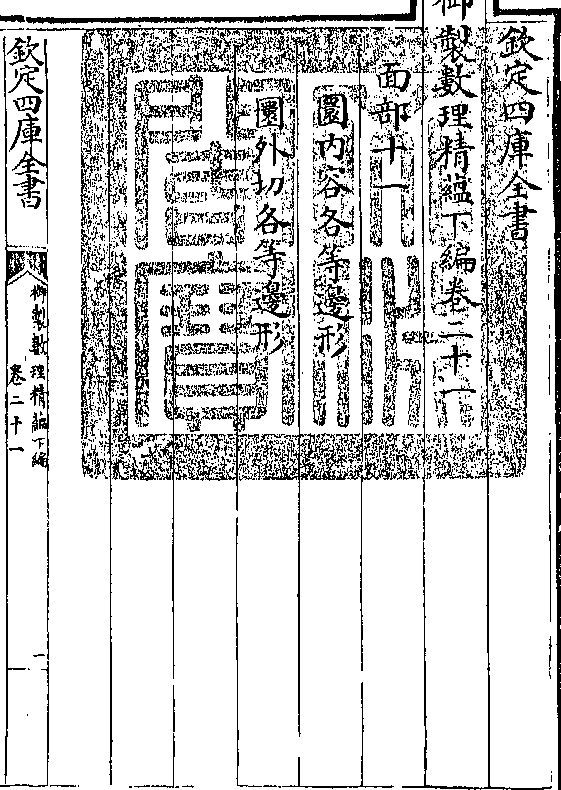 欽定四庫全書
御製數理精蘊下編卷二十一
面部十一
圜内容各等邊形
圜外切各等邊形
欽定四庫全書
御製數理精蘊下編
卷二十一
一